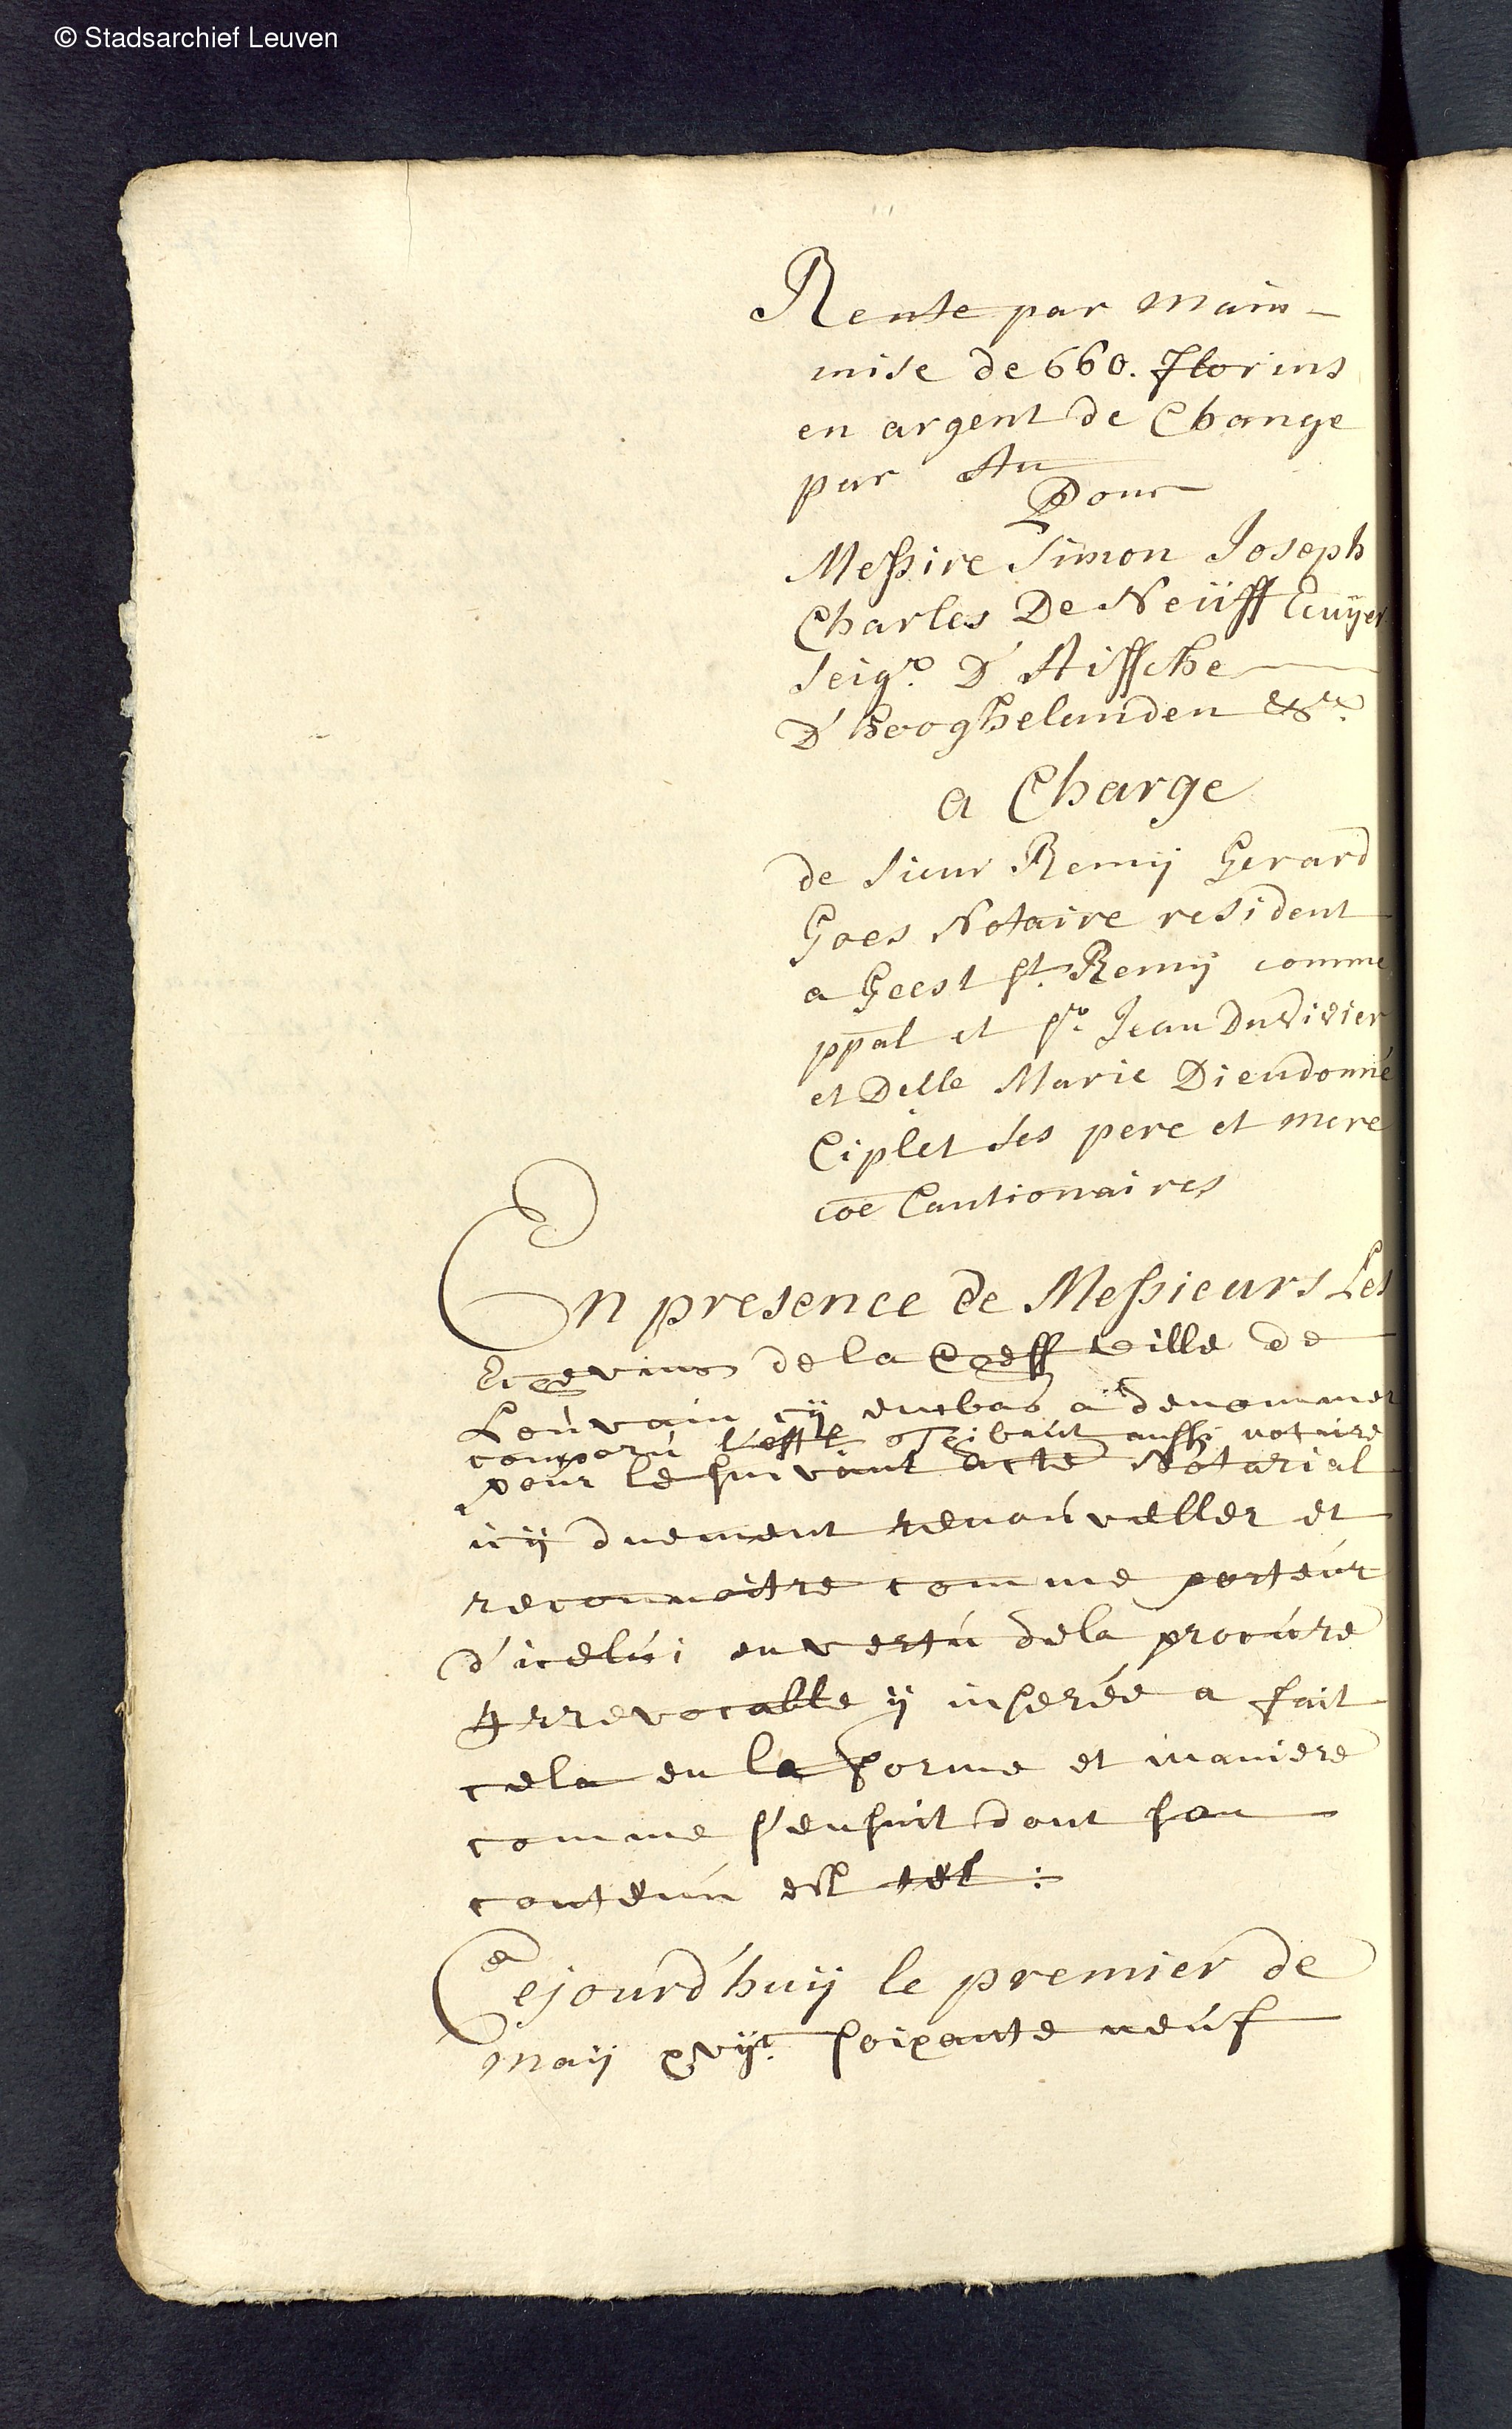 © Stadsarchief Leuven
Rente par main-
mise de 660. florins
en argent de Change
par An
Pour
Messire Simon Joseph
Charles De Neüff Ecuÿer
Seigr. D'Aissche
D'hooghelanden &ra.
a Charge
de Sieur Remÿ Gerard
Goes Notaire resident
a Geest St. Remÿ comme
ppal et Sr. Jean Duvivier
et Delle Marie Dieudonné
Ciplet ses pere et mere
coe Cautionaires
En presence de Messieurs Les
Echevins de la Cheff ville de
Louvain cÿ enbas a denommer
comparu Tribaut aussi notaire
pour le suivant acte Notarial
icÿ duement renouveller et
reconnoitre comme porteur
d'icelui en vertu dela procure
Irrevocable ÿ inserée a fait
cela en la forme et maniere
comme s'ensuit dont son
contenu est tel:
Cejourd'huÿ le premier de
maÿ xvijc. soixante neuf